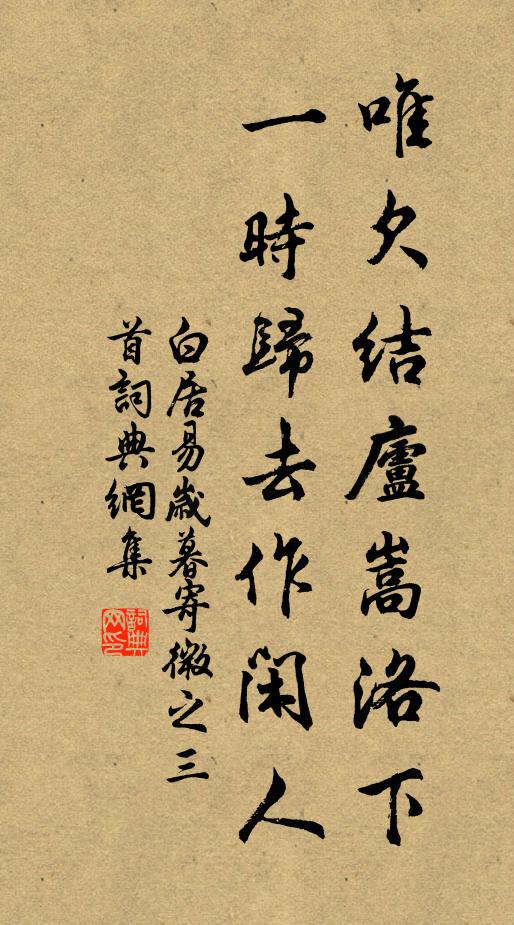 唯欠結廬嵩洛下
一時歸去作閑人
白居易歲暮寄微之三
首詞典網集
詞典
网印